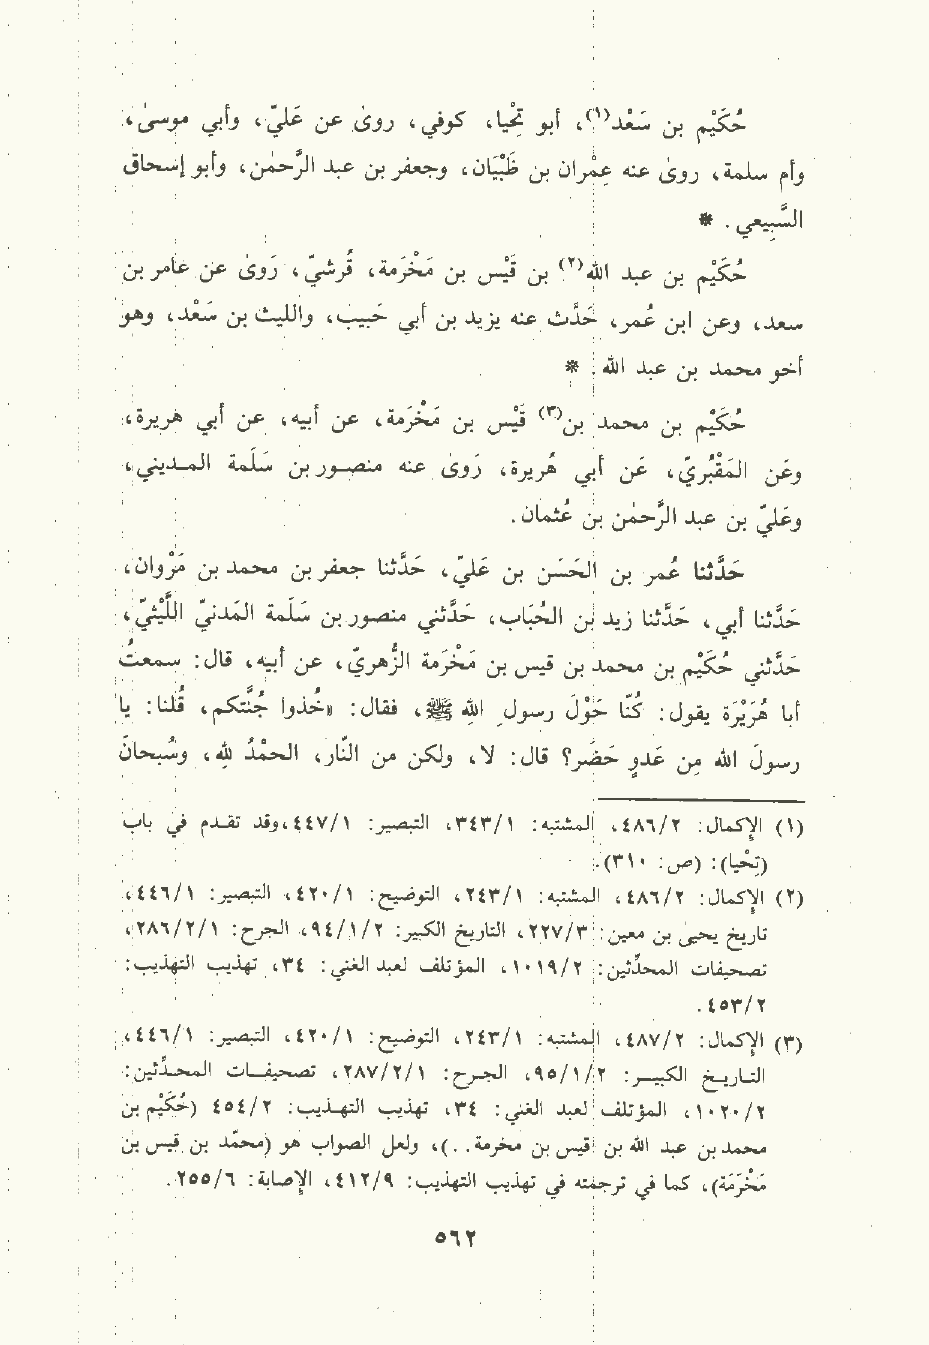 حُكَيْم بن سَعْد(١)، أبو تِحْيا، كوفي، روىٰ عن عَليّ، وأبي موسىٰ،
وأم سلمة، روىٰ عنه عِمْران بن ظَبْيَان، وجعفر بن عبد الرَّحمٰن، وأبو إسحاق
السَّبِيعي. *
حُكَيْم بن عبد الله(٢) بن قَيْس بن مَخْرَمة، قُرشيّ، رَوىٰ عن عامر بن
سعد، وعن ابن عُمر، حَدَّث عنه يزيد بن أبي حَبيب، والليث بن سَعْد، وهو
أخو محمد بن عبد الله. *
حُكَيْم بن محمد بن(٣) قَيْس بن مَخْرَمة، عن أبيه، عن أبي هريرة،
وعَن المَقْبُريّ، عَن أبي هُريرة، رَوىٰ عنه منصور بن سَلَمة المديني،
وعَليّ بن عبد الرَّحمٰن بن عُثمان.
حَدَّثنا عُمر بن الحَسَن بن عَليّ، حَدَّثنا جعفر بن محمد بن مَرْوان،
حَدَّثنا أبي، حَدَّثنا زيد بن الحُبَاب، حَدَّثني منصور بن سَلَمة المَدنيّ اللَّيْثيّ،
حَدَّثني حُكَيْم بن محمد بن قيس بن مَخْرَمة الزُّهريّ، عن أبيه، قال: سمعتُ
أبا هُرَيْرَة يقول: كُنّا حَوْلَ رسولِ اللهِ ﷺ، فقال: «خُذوا جُنَّتكم، قُلنا: يا
رسولَ الله مِن عَدوٍ حَضَر؟ قال: لا، ولكن من النَّار، الحمْدُ لله، وسُبحانَ
(١) الإكمال: ٤٨٦/٢، المشتبه: ٣٤٣/١، التبصير: ٤٤٧/١، وقد تقدم في باب
(تِحْيا): (ص: ٣١٠).
(٢) الإكمال: ٤٨٦/٢، المشتبه: ٢٤٣/١، التوضيح: ٤٢٠/١، التبصير: ٤٤٦/١،
تاريخ يحيى بن معين: ٢٢٧/٣، التاريخ الكبير: ٩٤/١/٢، الجرح: ٢٨٦/٢/١،
تصحيفات المحدِّثين: ١٠١٩/٢، المؤتلف لعبد الغني: ٣٤، تهذيب التهذيب:
٤٥٣/٢.
(٣) الإكمال: ٤٨٧/٢، المشتبه: ٢٤٣/١، التوضيح: ٤٢٠/١، التبصير: ٤٤٦/١،
التاريخ الكبير: ٩٥/١/٢، الجرح: ٢٨٧/٢/١، تصحيفات المحدِّثين:
١٠٢٠/٢، المؤتلف لعبد الغني: ٣٤، تهذيب التهذيب: ٤٥٤/٢ (حُكَيْم بن
محمد بن عبد الله بن قيس بن مخرمة..)، ولعل الصواب هو (محمّد بن قيس بن
مَخْرَمَة)، كما في ترجمته في تهذيب التهذيب: ٤١٢/٩، الإصابة: ٢٥٥/٦.
٥٦٢